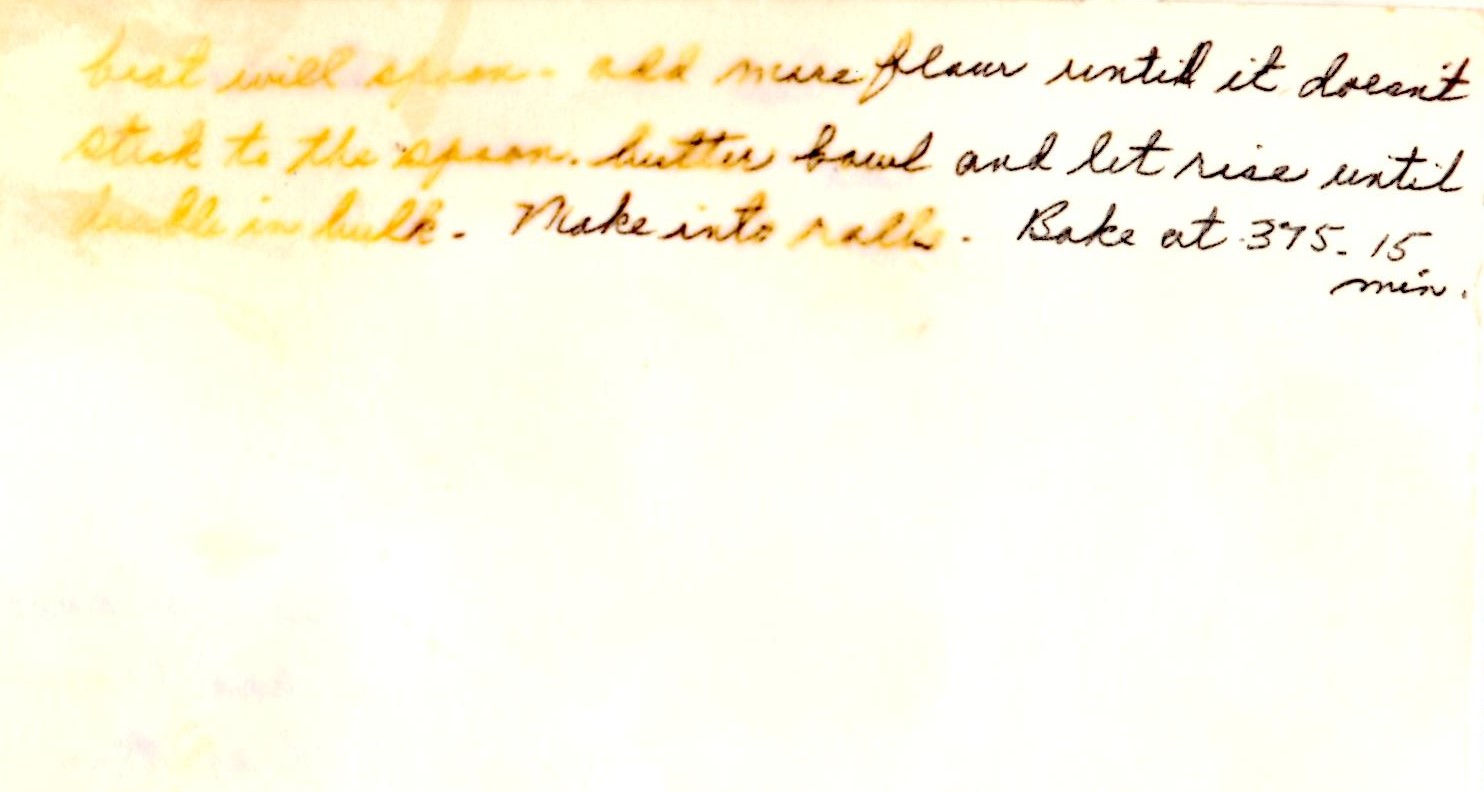 beat will spoon - add more flour until it doesn't
stick to the spoon. butter bowl and let rise until
double in bulk. Make into rolls. Bake at 375 - 15
min.